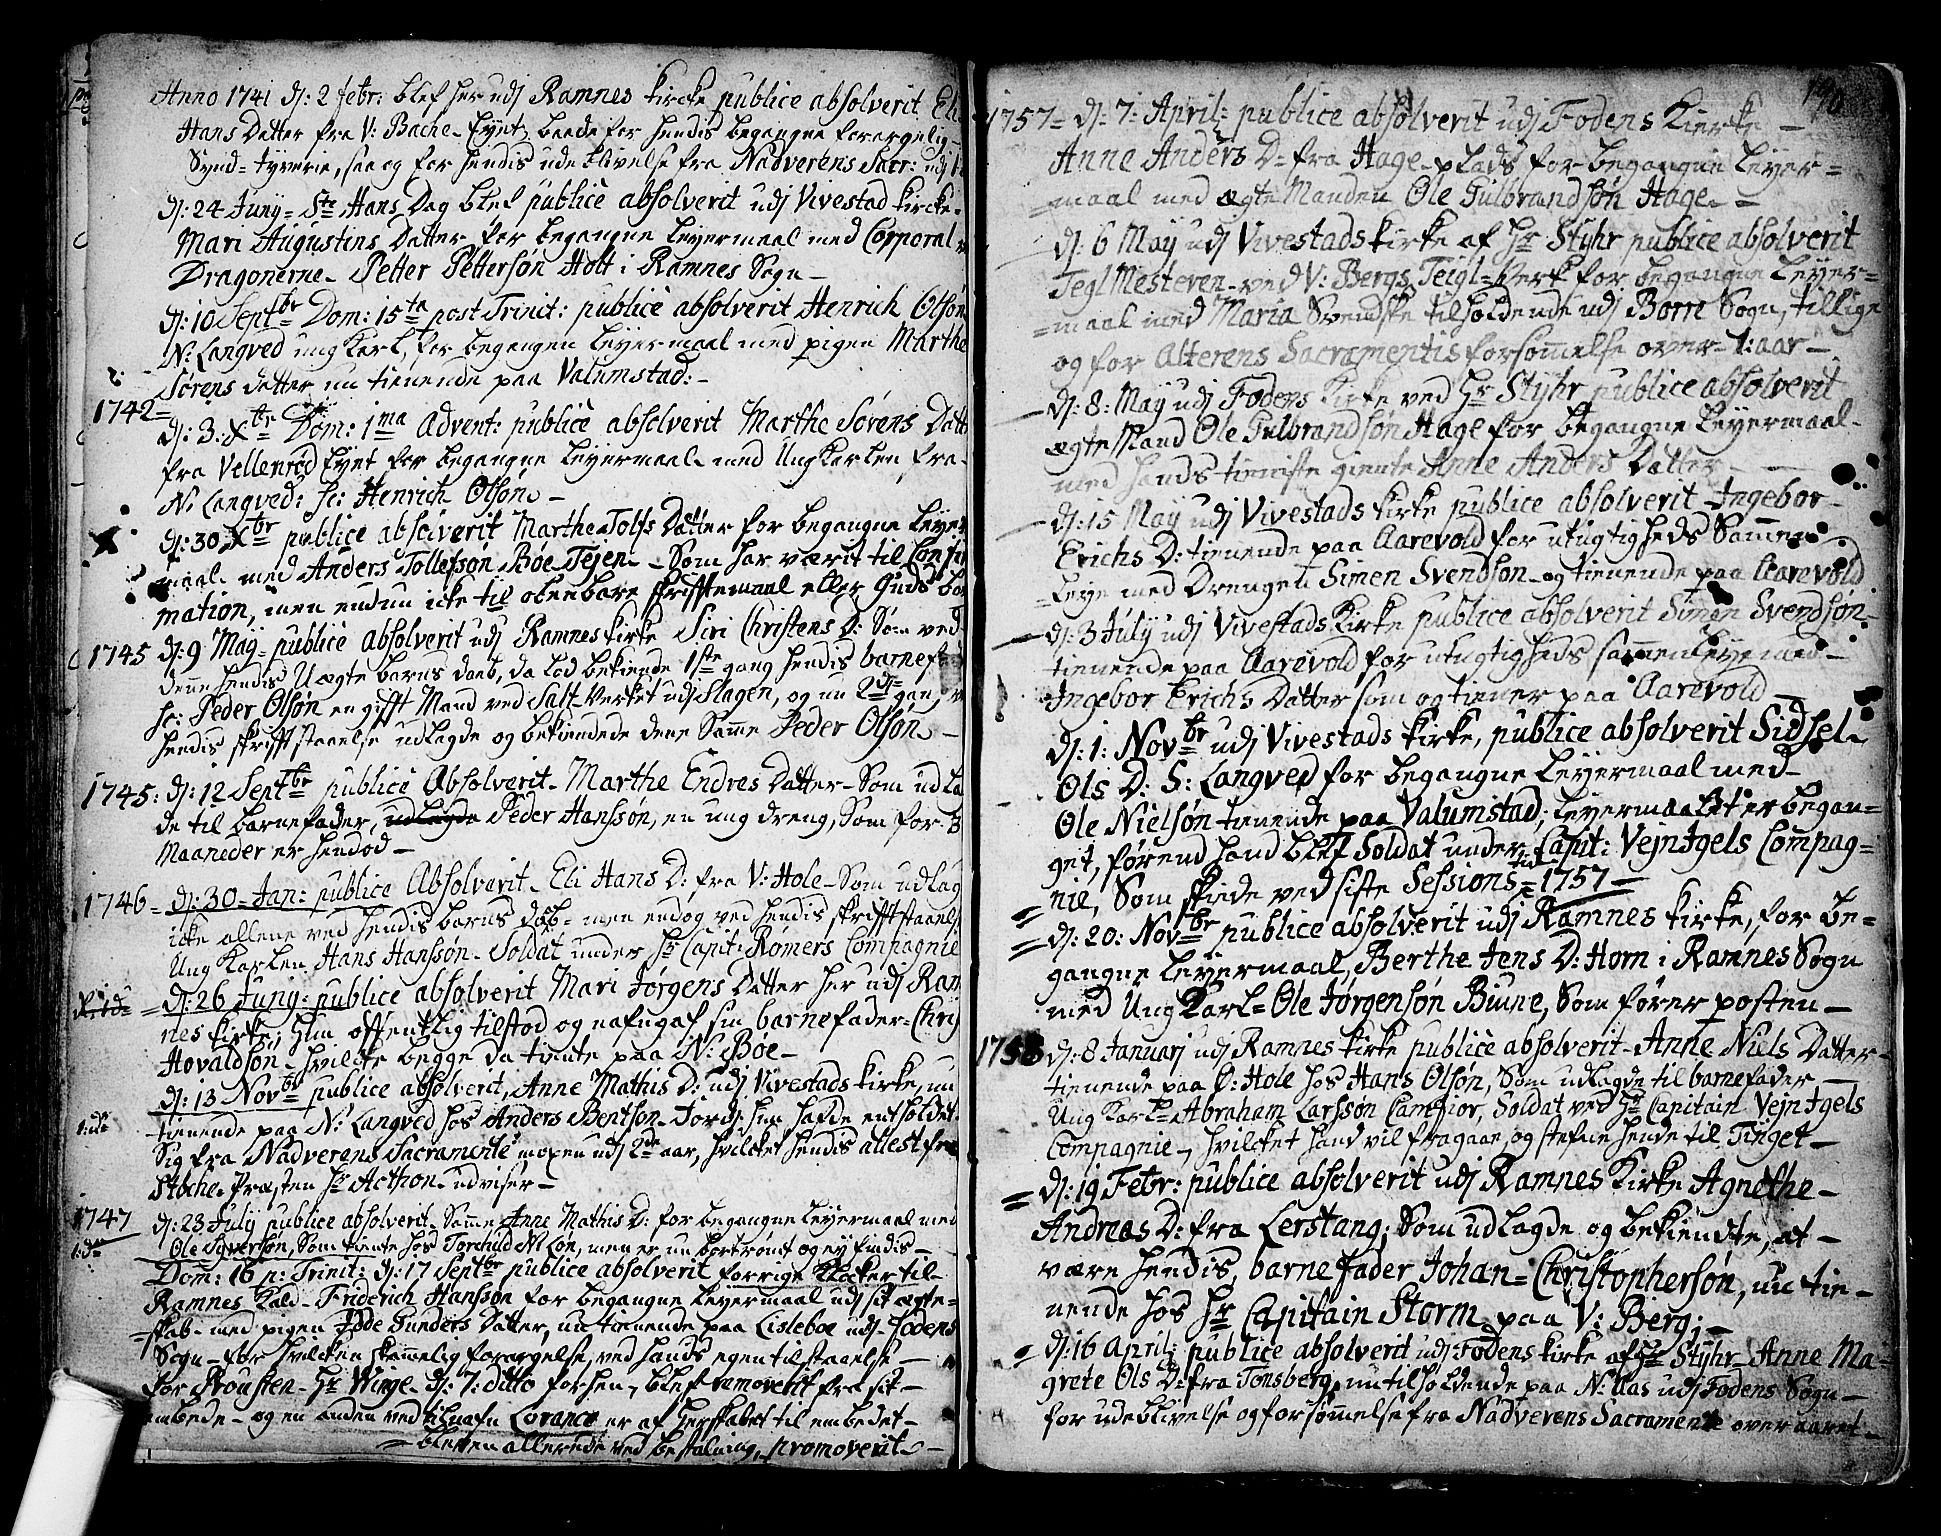 Anno 1741 d: 2 febr: blef her udj Ramnes kircke publice absolverit Eli
Hans Datter fra V: Bache-Eÿet, baade for hendis begangne forargelig
Synd = tyverie, saa og for hendis udeblivelse fra Nadverens Sacr: udj
d: 24 Junÿ = Ste Hans Dag blef publice absolverit udj Vivestad kircke
Mari Augustins Datter for begangne Leÿermaal med Corporal
Dragonerne Petter Pettersøn Holt i Ramnes Sogn
d: 10 Septbr Dom: 15ta post Trinit: publice absolverit Henrich Olsøn
N: Langved ung karl, for begangen Leÿermaal med pigen Marthe
Sørens datter nu tienende paa Valumstad:
1742 =
d: 3. Xbr Dom: 1ma Advent: publice absolverit Marthe Sørens Datt
fra Vellenrød Eÿet for begangne Leÿermaal med Ung Karlen fra
N: Langved: sc: Henrich Olsøn
d: 30 Xbr publice absolverit Marthe Tolfs Datter for begangne Leÿer
maal med Anders Tollefsøn Bøe Tejen Som har værit til Confir
mation, men endnu icke til obenbare skrifftemaal eller Guds bo
1745 d: 9 Maj publice absolverit udj Ramnes kirke Siri Christens D: Som ved
denne hendis Uægte barns daab, da lod bekiende 1ste gang hendis barnef
sc: Peder Olsøn en gifft Mand ved Salt-Verket udj Slagen, og nu 2den gang v
hendis skrifft staaelse udlagde og bekiendede dene Samme Peder Olsøn
1745: d: 12 Septbr publice Absolverit Marthe Endres Datter Som udla
de til barnefader, udlagde Peder Hanssøn, en ung dreng, Som for 3
Maaneder er hendød
1746 = d: 30 Jan: publice Absolverit Eli Hans D: fra V: Hole Som udlag
icke allene ved hendis barns dåb men endog ved hendis skrifft staaels
Ung Karlen Hans Hanssøn Soldat under Hr Capit: Rømers Compagnie
= d: 26 Junÿ: publice absolverit Mari Jørgens Datter her udj Ram
nes kirke; Hun offentlig tilstod og nafngaf sin barnefader = Chri
Hovaldsøn hvilcke begge da tiente paa N: Bøe
d: 13 Novbr publice absolverit, Anne Mathis D: udj Vivestads kirke, nu
tienende paa N: Langved hos Anders Bentsøn. Fordj: hun hafde entholdet
Sig fra Nadverens Sacramente moxen udj 2de aar, hvilcket hendis attest fra
Stoche-Præsten Hr Acthon udviser
1747 d: 23 Julÿ publice absolverit Samme Anne Mathis D: for begangne Leÿermaal med
Ole Sÿversøn, Som tiente hos Torchild , men er nu bortrømt og eÿ findis
Dom: 16 p: Trinit: d: 17 Septbr publice absolverit forrige Klocker til
Ramnes Kald Friderich Hanssøn for begangne Leÿermaal udj sit ægte =
= skab med pigen Gunders Datter, nu tienende paa Lisleboe udj Fodens
Sogn for hvilcken skammelig forargelse, ved hands egen tilstaaelse
for Prousten Hr Winge d: 7: ditto forhen blef removerit fra sit
embede og en anden ved tilnafn Lorance er af herskabet til embedet
= bleven allerede ved bestalning promoverit
1757 = d: 7: April: publice absolverit udj Fodens Kierke
Anne Anders D: fra Hage-plads for begangne Leÿer =
= maal med ægte Manden Ole Gulbrandsøn Hage
d: 6 Maÿ udj Vivestads kirke af Hr Stÿhr publice absolverit
Tegl Mesteren ved V: Bergs Teigl-Verk for begangne Leÿer =
= maal med Maria Svendske tilholdende udj Borre Sogn, tillige
og for Alterens Sacramentis forsømelse over 1: aar
d: 8: Maÿ udj Fodens kirke ved Hr Stÿhr publice absolverit
ægte Mand Ole Gulbrandsøn Hage for begangne Leÿermaal
med hands tieniste giente Anne Anders Datter
d: 15 Maÿ udj Vivestads kirke publice absolverit Ingebor
Erichs D: tienende paa Aarevold for utugtigheds Sammen
= Leye med Drengen Simen Svendsøn og tienende paa Aarevold
d: 3 Julÿ udj Vivestads Kirke publice absolverit Simon Svendsøn
tienende paa Aarevold for utugtigheds sammenleye med
Ingebor Erichs Datter som og tiener paa Aarevold
d: 1: Novbr udj Vivestads kirke, publice absolverit Sidsel
Ols D: S: Langved for begangne Leÿermaal med
Ole Nielsøn tienende paa Valumstad; Leÿermaalet er began =
get, førend hand blef Soldat under Capit: Vejntgels Compag =
nie, Som skiede ved siste Sessions tid = 1757
= d: 20: Novbr publice absolverit udj Ramnes kirke, for be =
gangne Leÿermaal, Berthe Jens D: Horn i Ramnes Sogn
med Ung Karl = Ole Jørgensøn Biune, Som fører posten
1758 d: 8 Januarj udj Ramnes kirke publice absolverit Anne Niels Datter
tienende paa Ø: Hole hos Hans Olsøn, Som udlagde til barnefader
Ung Karln Abraham Larssøn Camfior, Soldat ved Hr Capitain Vejntgels
Compagnie, hvilcket hand vil fragaae, og stefne hende til Tinget
= d: 19 Febr: publice absolverit udj Ramnes Kirke Agnethe
Andreas D: fra Lerstang; Som udlagde og bekiendte, at
være hendis barnefader Johan = Christophersøn, nu tie =
nende hos Hr Capitain Storm paa V: Berg;
d: 16 April: publice absolverit udj Fodens kirke af Hr Stÿhr Anne Ma =
grete Ols D: fra Tønsberg, nu tilholdende paa N: Aas udj Fodens Sogn
for udeblivelse og forsømmelse fra Nadverens Sacramente over aaret